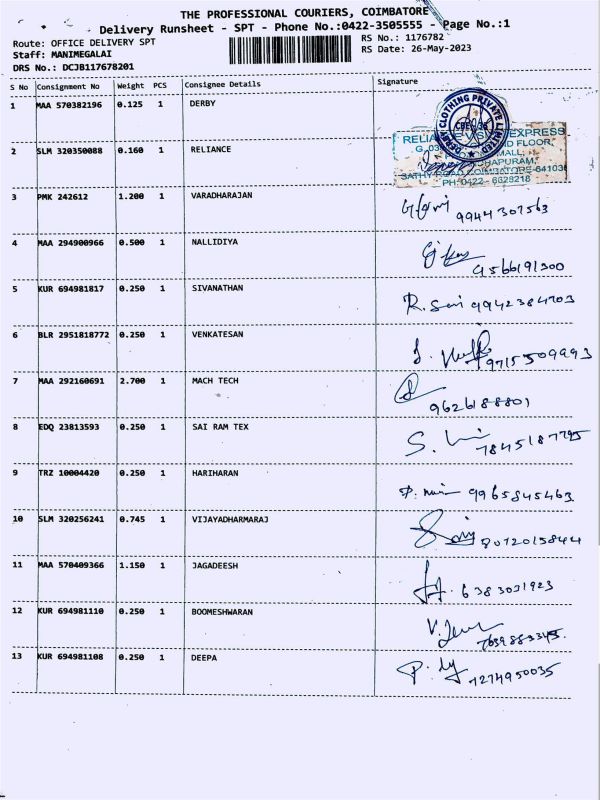 THE PROFESSIONAL COURIERS, COIMBATORE
Delivery Runsheet - SPT - Phone No.:0422-3505555 - Page No.:1
Route: OFFICE DELIVERY SPT RS No.: 1176782
Staff: MANIMEGALAI RS Date: 26-May-2023
DRS No.: DCJB117678201
S No Consignment No Weight PCS Consignee Details Signature
1 MAA 570382196 0.125 1 DERBY
DERBY CLOTHING PRIVATE LIMITED
CBE-36
2 SLM 320350088 0.160 1 RELIANCE
EXPRESS
FLOOR,
MALL,
SATHY ROAD COIMBATORE-641035
PH:0422 - 6628218
3 PMK 242612 1.200 1 VARADHARAJAN 9944307563
4 MAA 294900966 0.500 1 NALLIDIYA 9566191300
5 KUR 694981817 0.250 1 SIVANATHAN 9942384703
6 BLR 2951818772 0.250 1 VENKATESAN 9715509993
7 MAA 292160691 2.700 1 MACH TECH 9626188801
8 EDQ 23813593 0.250 1 SAI RAM TEX 7845187795
9 TRZ 10004420 0.250 1 HARIHARAN 9965845463
10 SLM 320256241 0.745 1 VIJAYADHARMARAJ 8072015844
11 MAA 570409366 1.150 1 JAGADEESH 6383031923
12 KUR 694981110 0.250 1 BOOMESHWARAN 7639883345
13 KUR 694981108 0.250 1 DEEPA 7274950035